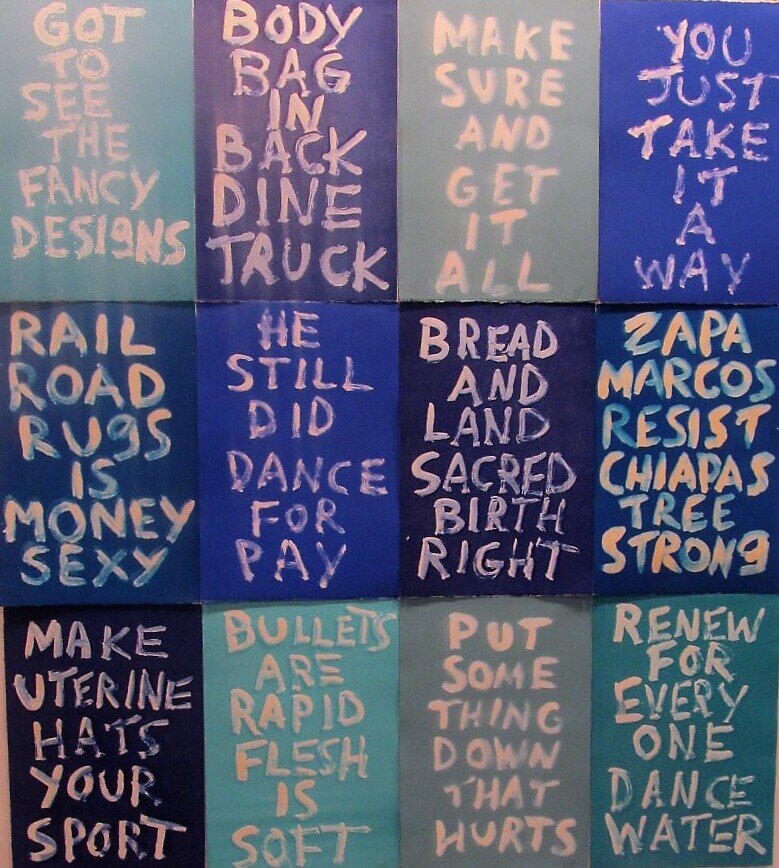 GOT
TO
SEE
THE
FANCY
DESIGNS
BODY
BAG
IN
BACK
DINE
TRUCK
MAKE
SURE
AND
GET
IT
ALL
YOU
JUST
TAKE
IT
A
WAY
RAIL
ROAD
RUGS
IS
MONEY
SEXY
HE
STILL
DID
DANCE
FOR
PAY
BREAD
AND
LAND
SACRED
BIRTH
RIGHT
ZAPA
MARCOS
RESIST
CHIAPAS
TREE
STRONG
MAKE
UTERINE
HATS
YOUR
SPORT
BULLETS
ARE
RAPID
FLESH
IS
SOFT
PUT
SOME
THING
DOWN
THAT
HURTS
RENEW
FOR
EVERY
ONE
DANCE
WATER